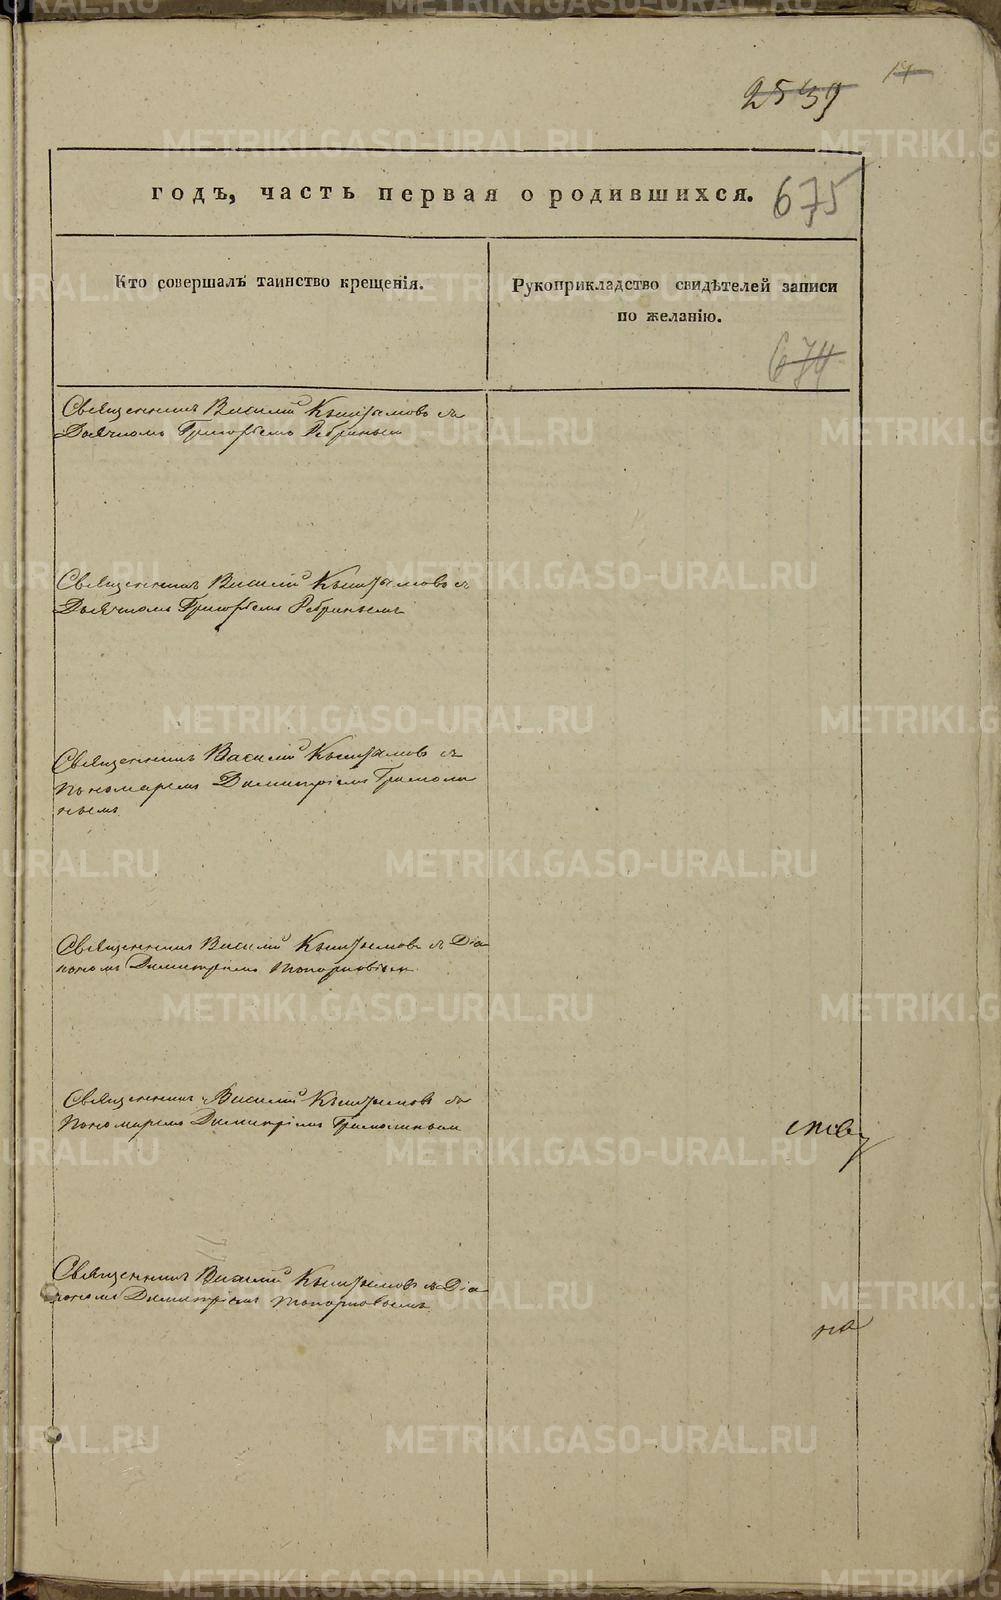 14
2539
годъ, часть первая о родившихся.
675
Кто совершалъ таинство крещенія.
Рукоприкладство свидѣтелей записи
по желанію.
674
Священникъ Василій Кыштымовъ съ
Дьячкомъ Григорьемъ
Священникъ Василій Кыштымовъ съ
Дьячкомъ Григорьемъ
Священникъ Василій Кыштымовъ съ
Пономаремъ Димитріемъ
Священникъ Василій Кыштымовъ съ Діа
кономъ Димитріемъ Топорковымъ
Священникъ Василій Кыштымовъ съ
Пономаремъ Димитріемъ
Священникъ Василій Кыштымовъ съ Діа
кономъ Димитріемъ Топорковымъ
на
METRIKI.GASO-URAL.RU